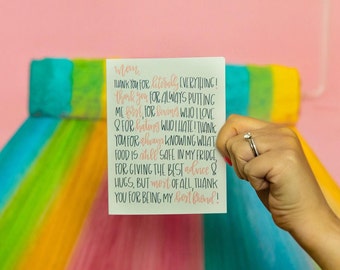 mom,
THANK YOU FOR literally EVERYTHING!
thank you FOR ALWAYS PUTTING
ME first, FOR loving WHO I LOVE
& FOR hating WHO I HATE! THANK
YOU FOR always KNOWING WHAT
FOOD IS still SAFE IN MY FRIDGE,
FOR GIVING THE BEST advice &
HUGS, BUT most OF ALL, THANK
YOU FOR BEING MY best friend!